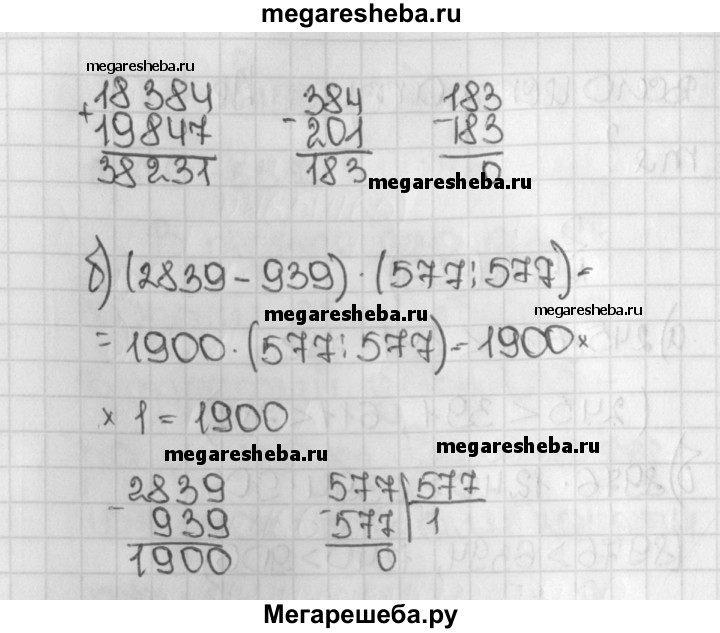 megaresheba.ru
megaresheba.ru
+ 18 384 - 384 - 183
19 847 201 183
38 231 183 0
megaresheba.ru
б) (2839 - 939) · (577 : 577) =
megaresheba.ru megaresheba.ru
= 1900 · (577 : 577) = 1900 ×
× 1 = 1900
megaresheba.ru megaresheba.ru
- 2839 - 577 | 577
939 577 | 1
1900 0
Мегарешеба.ру